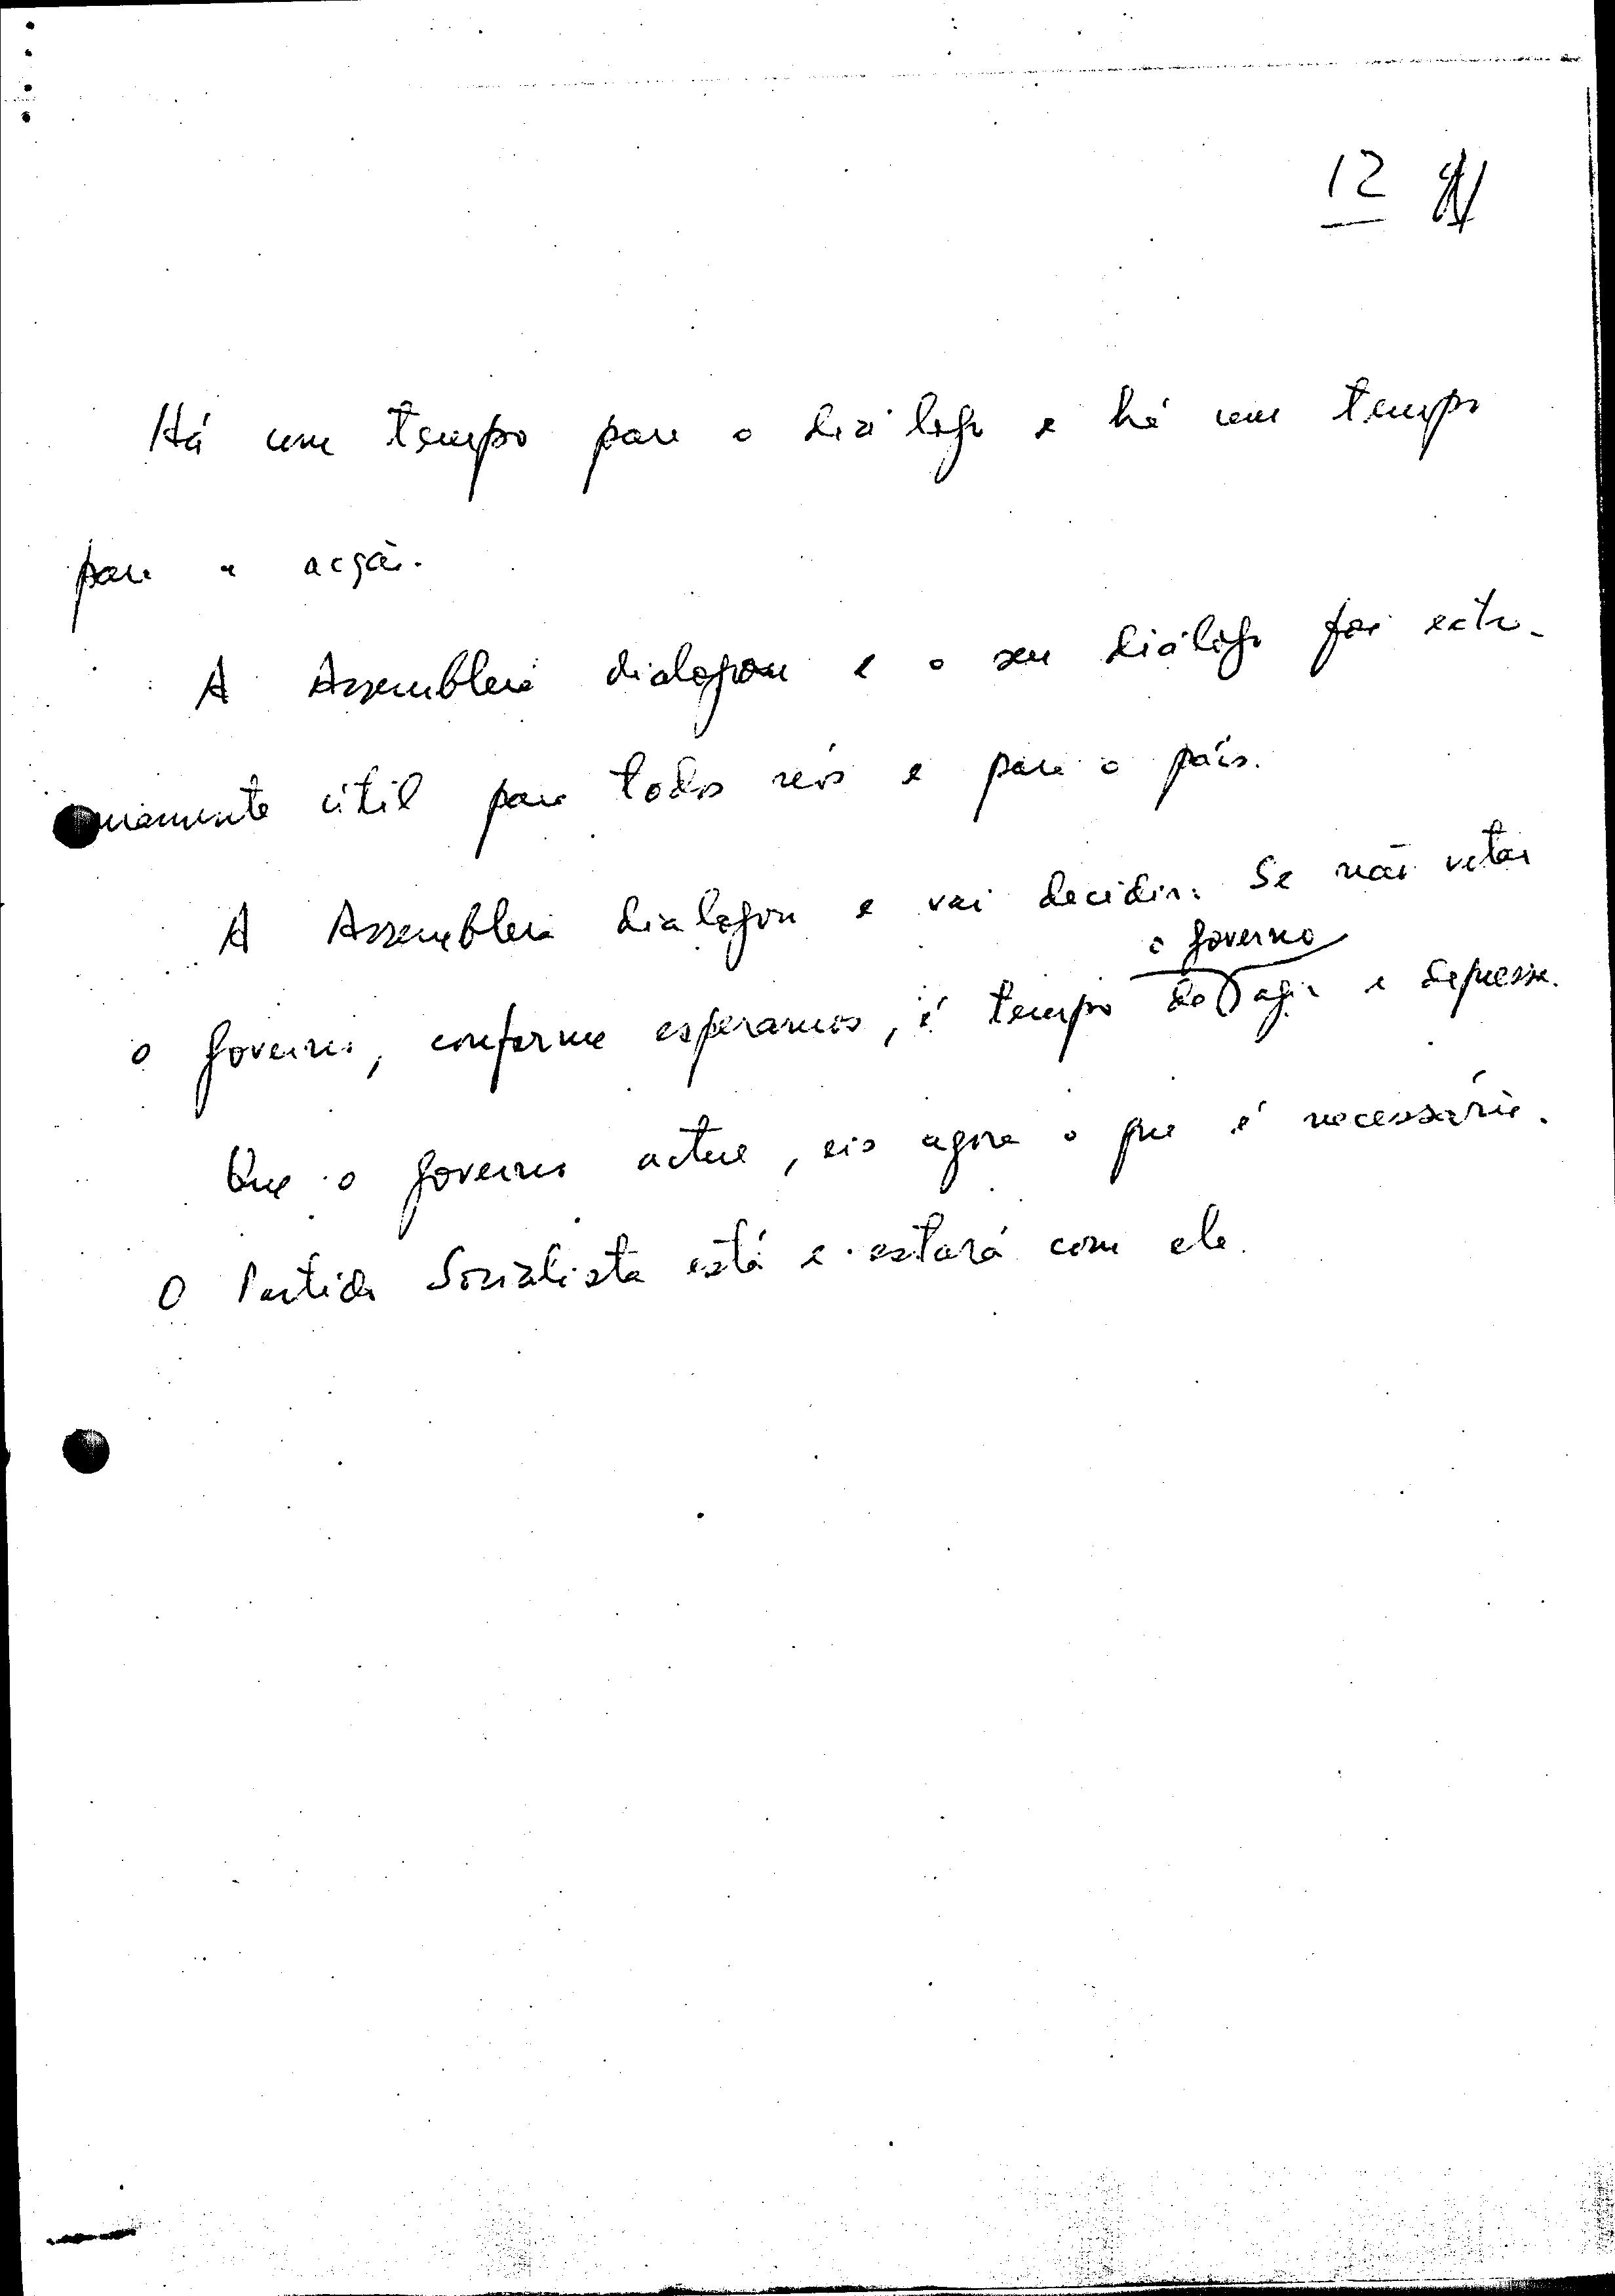 12
Há um tempo para o diálogo e há um tempo
para a acção.
A Assembleia dialogou e o seu diálogo foi extre-
mamente útil para todos nós e para o país.
A Assembleia dialogou e vai decidir. Se não vetar
o governo
o governo, conforme esperamos, é tempo de agir e depressa.
Que o governo actue, eis agora o que é necessário.
O Partido Socialista está e estará com ele.